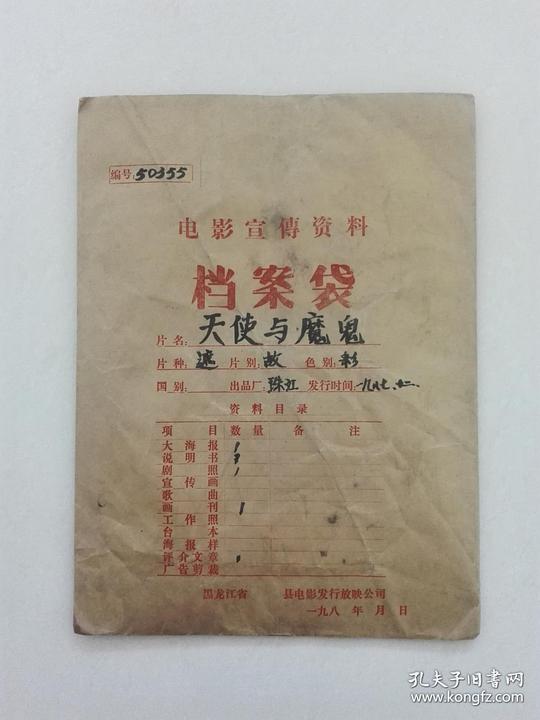 编号:50355
电影宣傳资料
档案袋
片名:天使与魔鬼
片种:遮 片别:故 色别:彩
国别: 出品厂:珠江 发行时间:一九八七、十二、
资料目录
项目 数量 备注
大海报 1
说明书 3
剧照 1
宣传画
歌曲
画刊 1
工作照
台本
海报样
评介文章 1
广告剪裁
黑龙江省 县电影发行放映公司
一九八 年 月 日
孔夫子旧书网
www.kongfz.com